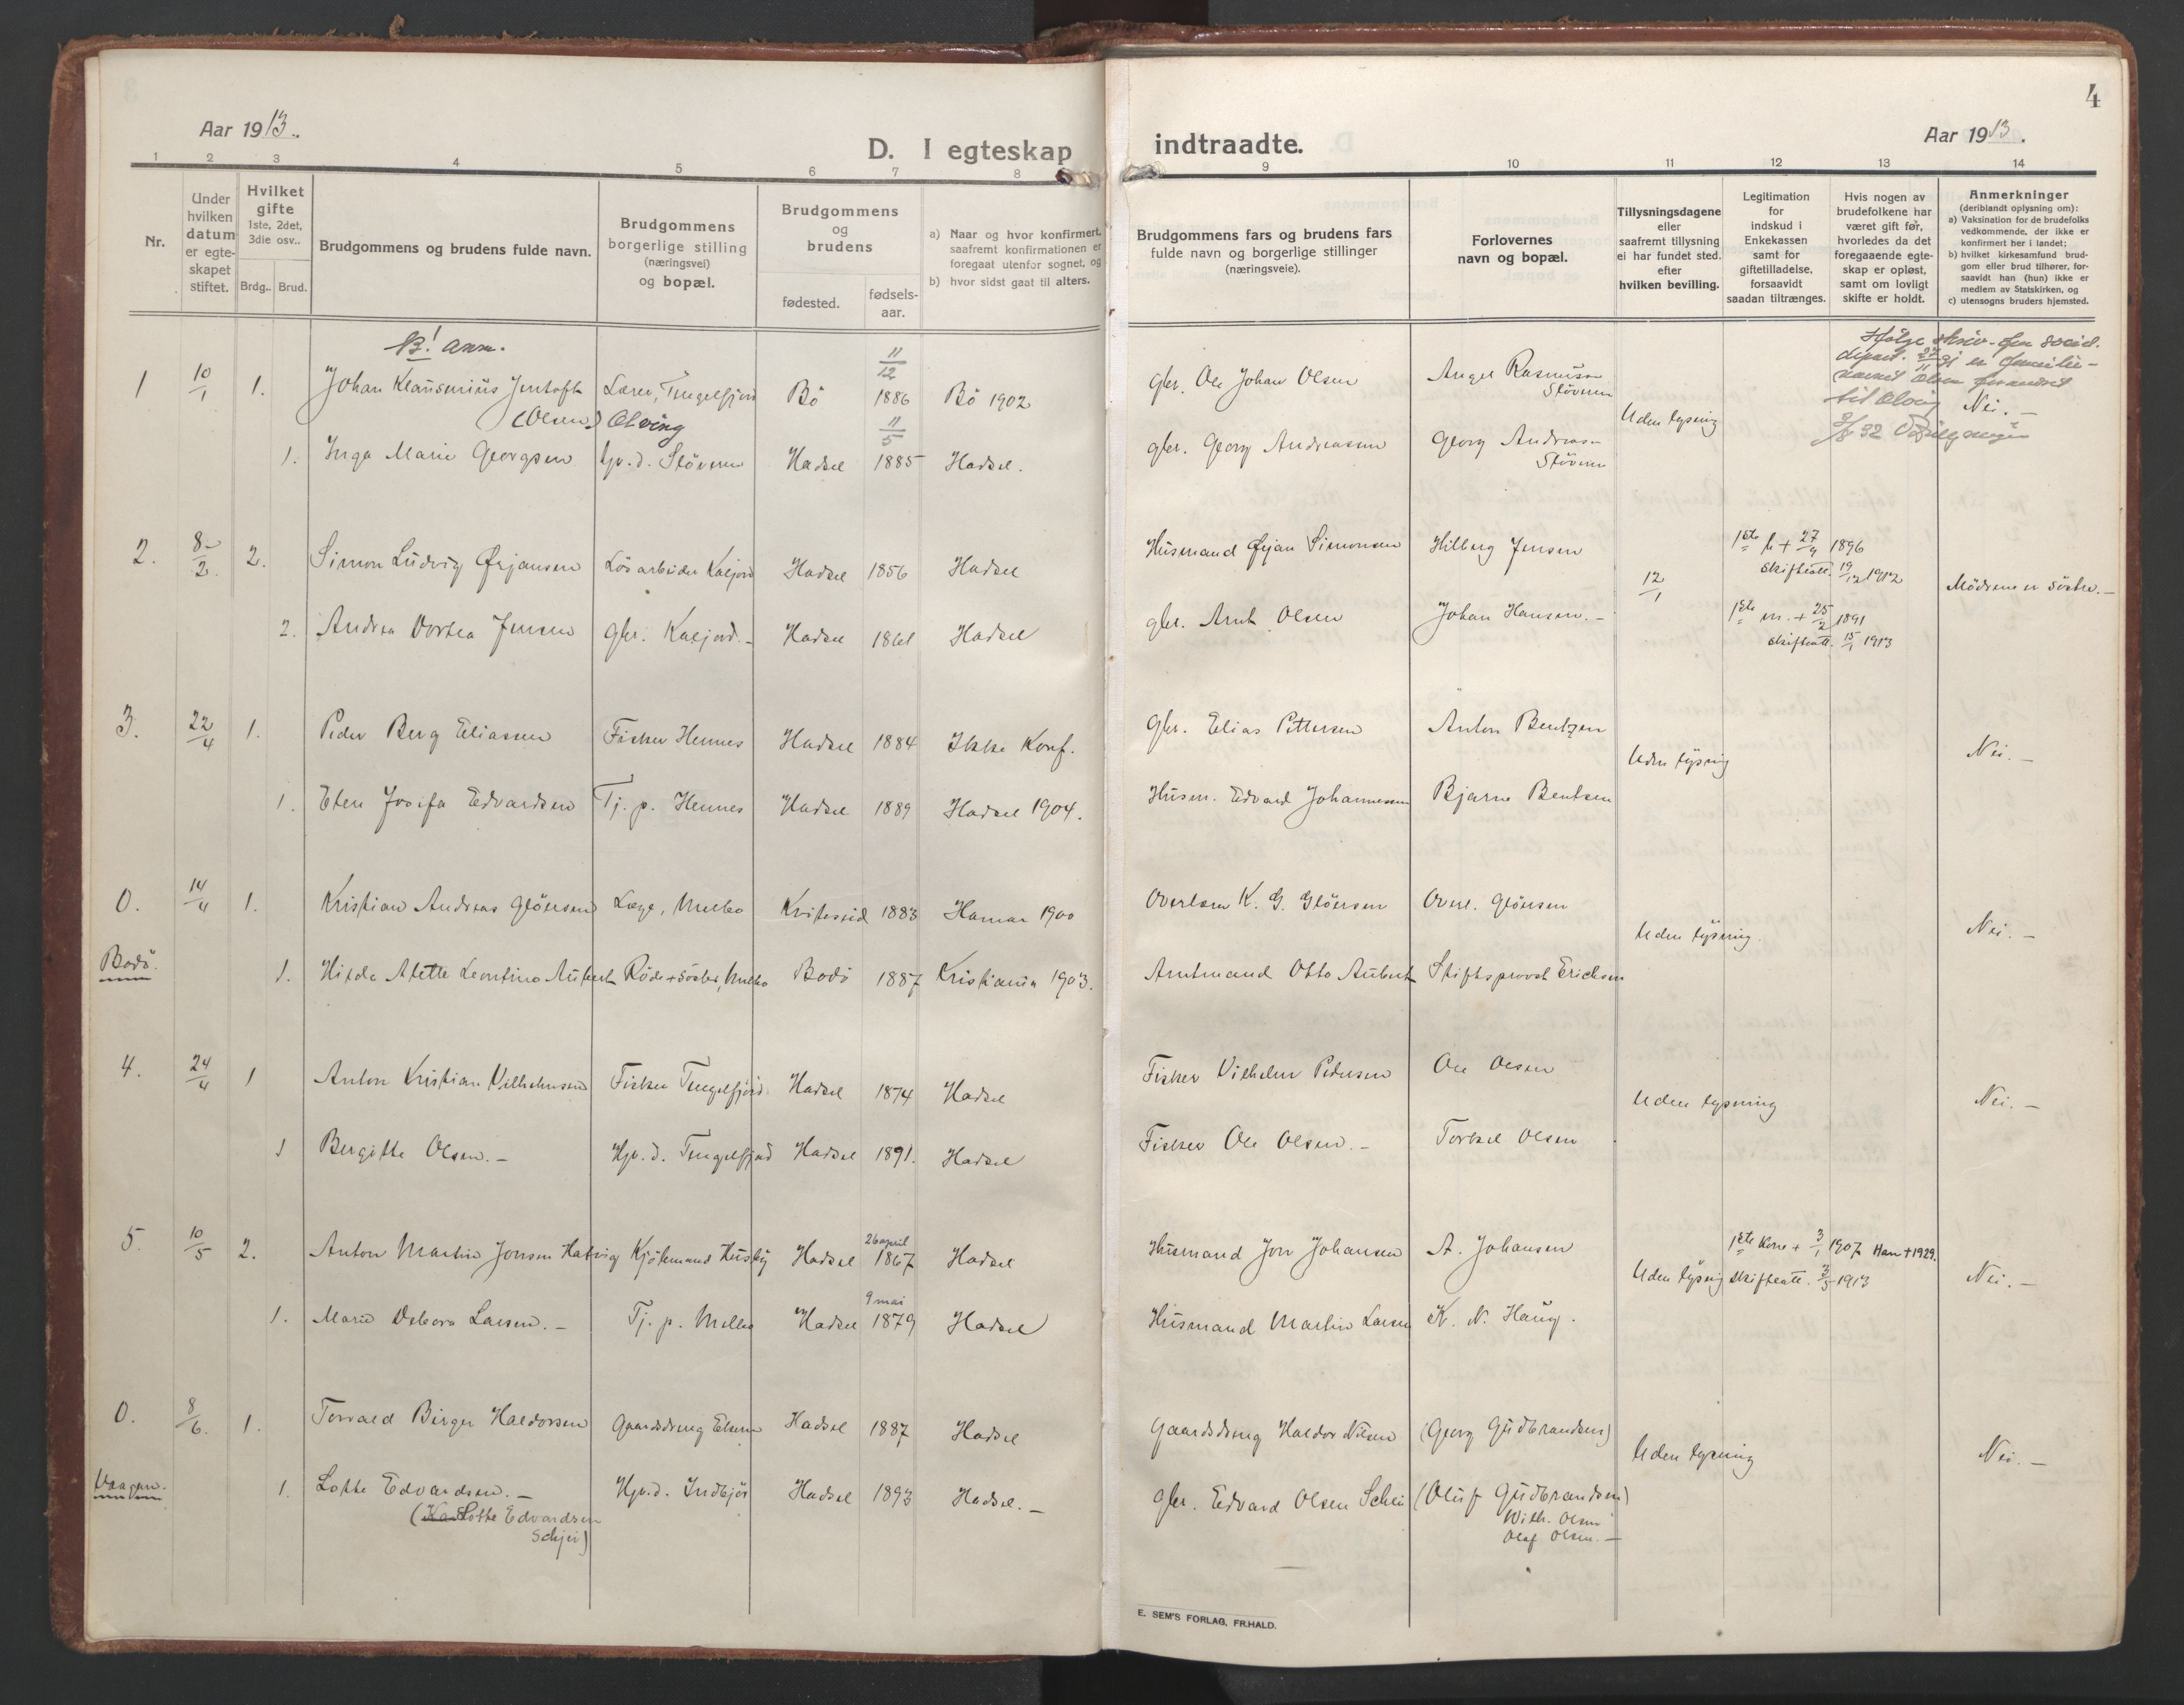 Aar 1913.
D. I egteskap indtraadte.
Aar 1913.
4
1 2 3 4 5 6 7 8 9 10 11 12 13 14
Nr.
Under hvilken datum er egteskapet stiftet.
Hvilket gifte 1ste, 2det, 3die osv..
Brdg.. Brud.
Brudgommens og brudens fulde navn.
Brudgommens borgerlige stilling (næringsvei) og bopæl.
Brudgommens og brudens
fødested.
fødselsaar.
a) Naar og hvor konfirmert, saafremt konfirmationen er foregaat utenfor sognet, og
b) hvor sidst gaat til alters.
Brudgommens fars og brudens fars fulde navn og borgerlige stillinger (næringsveie).
Forlovernes navn og bopæl.
Tillysningsdagene eller saafremt tillysning ei har fundet sted. efter hvilken bevilling.
Legitimation for indskud i Enkekassen samt for giftetilladelse, forsaavidt saadan tiltrænges.
Hvis nogen av brudefolkene har været gift før, hvorledes da det foregaaende egteskap er opløst, samt om lovligt skifte er holdt.
Anmerkninger (deriblandt oplysning om):
a) Vaksination for de brudefolks vedkommende, der ikke er konfirmert her i landet;
b) hvilket kirkesamfund brudgom eller brud tilhører, forsaavidt han (hun) ikke er medlem av Statskirken, og
c) utensogns bruders hjemsted.
B! anm.
1 10/1 1. Johan Klausenius Jentoft (Olsen) Olving Lærer, Tengelfjord Bö 11/12 1886 Bö 1902 gbr. Ole Johan Olsen Angel Rasmussen Stövernn
Uden lysning Nei. –
Ifölge skriv. fra social. depart. 27/11 31 er familienavnet Olsen forandret til Olving
3/8 32
1. Inga Marie Georgsen Hadsel 11/5 1885 Hadsel. gbr. Georg Andreassen Georg Andreas
2. 8/2. 2. Simon Ludvig Ørjansen Lösarbeider Kaljord Hadsel 1856 Hadsel Husmand Ørjan Simonsen Hilberg Jensen 1ste h + 27/4 1896
skifteatt. 19/12 1912
12/1 Mödrene er söstre. –
2. Andrea Dortea Jensen gbr. Kaljord. – Hadsel 1861 Hadsel gbr. Arnt Olsen Johan Hansen. – 1ste m. + 25/2 1891
skifteatt. 15/1 1913
3. 22/4 1. Peder Berg Eliassen Fisker Hennes Hadsel 1884 Ikke Konf. gbr. Elias Pettersen Anton Bentzen
Uden lysning Nei. –
1. Elen Josefa Edvardsen Tj. p. Hennes Hadsel 1889 Hadsel 1904. Husm. Edvard Johannessen Bjarne Bentsen
0. 14/4 1. Kristian Andreas Glöersen Læge, Melbo Kviteseid 1883 Hamar 1900 Overlærer K. G. Glöersen Overl. Glöersen
Uden lysning. Nei. –
Bodö. 1. Hilda Alette Leontine Aubert Röde + söster, Melbo Bodö 1887 Kristiania 1903. Amtmand Otto Aubert Stiftsprovst Ericksen
4. 24/4 1 Anton Kristian Vilhelmsen Fisker Tengelfjord. Hadsel 1874 Hadsel Fisker Vilhelm Pedersen Ole Olsen
Uden lysning Nei. –
1 Bergitte Olsen. – Hp. d. Tengelfjord Hadsel 1891. Hadsel Fisker Ole Olsen. – Torkel Olsen
5. 10/5 2. Anton Martin Jonsen Hatvig Kjöbmand Husby Hadsel 26 april 1867 Hadsel Husmand Jon Johansen A. Johansen 1ste Kone + 3/1 1907 Han + 1929.
Uden lysning skifteatt. 3/5 1913 Nei. –
1. Marie Debora Larsen. – Tj. p. Melbo Hadsel 9 mai 1879 Hadsel Husmand Martin Larsen K. N. Haug.
0. 8/6. 1. Torvald Birger Haldorsen Gaardsdreng Hadsel 1887 Hadsel Gaardsdreng Haldor Nilsen (Georg Gudbrandsen)
Uden lysning Nei. –
Vaagan. 1. Lotte Edvardsen. – Hp. d. Indbjör Hadsel 1893 Hadsel. – gbr. Edvard Olsen Schei (Oluf Gudbrandsen)
(Lotte Edvardsen Schjei) Wilh. Olsen
Olaf Olsen. –
E. SEM'S FORLAG, FR.HALD.